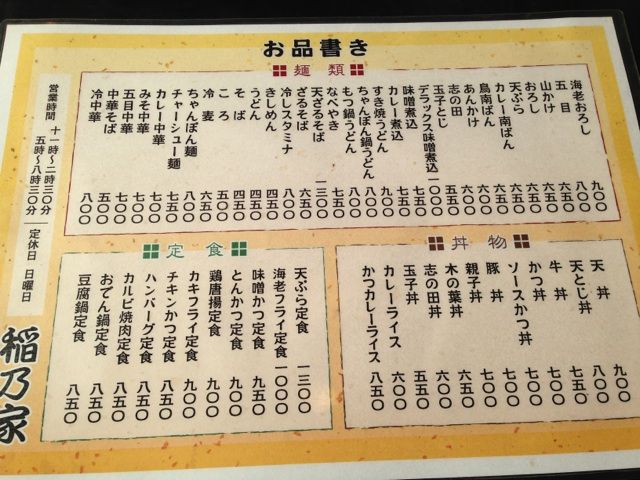 お品書き
麺類
海老おろし 九〇〇
五目 八〇〇
山かけ 六五〇
おろし 六五〇
天ぷら 六五〇
カレー南ばん 六五〇
鳥南ばん 六五〇
あんかけ 六〇〇
志の田 五五〇
玉子とじ 五五〇
デラックス味噌煮込 一〇〇〇
味噌煮込 七五〇
カレー煮込 七五〇
すき焼うどん 九〇〇
ちゃんぽん鍋うどん 八〇〇
もつ鍋うどん 八〇〇
なべやき 七五〇
天ざるそば 一三〇〇
ざるそば 六五〇
冷しスタミナ 八〇〇
きしめん 四五〇
うどん 四五〇
そば 四五〇
ころ 五〇〇
冷麦 六五〇
ちゃんぽん麺 八〇〇
チャーシュー麺 七五〇
カレー中華 七〇〇
みそ中華 六〇〇
五目中華 八〇〇
中華そば 五〇〇
冷中華 八〇〇
丼物
天丼 九〇〇
天とじ丼 八〇〇
牛丼 七〇〇
かつ丼 七五〇
ソースかつ丼 八〇〇
豚丼 七〇〇
親子丼 七〇〇
木の葉丼 六〇〇
志の田丼 五五〇
玉子丼 五五〇
カレーライス 六〇〇
かつカレーライス 八五〇
定食
天ぷら定食 一三〇〇
海老フライ定食 一〇〇〇
味噌かつ定食 九五〇
とんかつ定食 九〇〇
鶏唐揚定食 九〇〇
カキフライ定食 九〇〇
チキンかつ定食 八五〇
ハンバーグ定食 八五〇
カルビ焼肉定食 八五〇
おでん鍋定食 八五〇
豆腐鍋定食 八五〇
営業時間 十一時〜二時三〇分
五時〜八時三〇分
定休日 日曜日
稲乃家